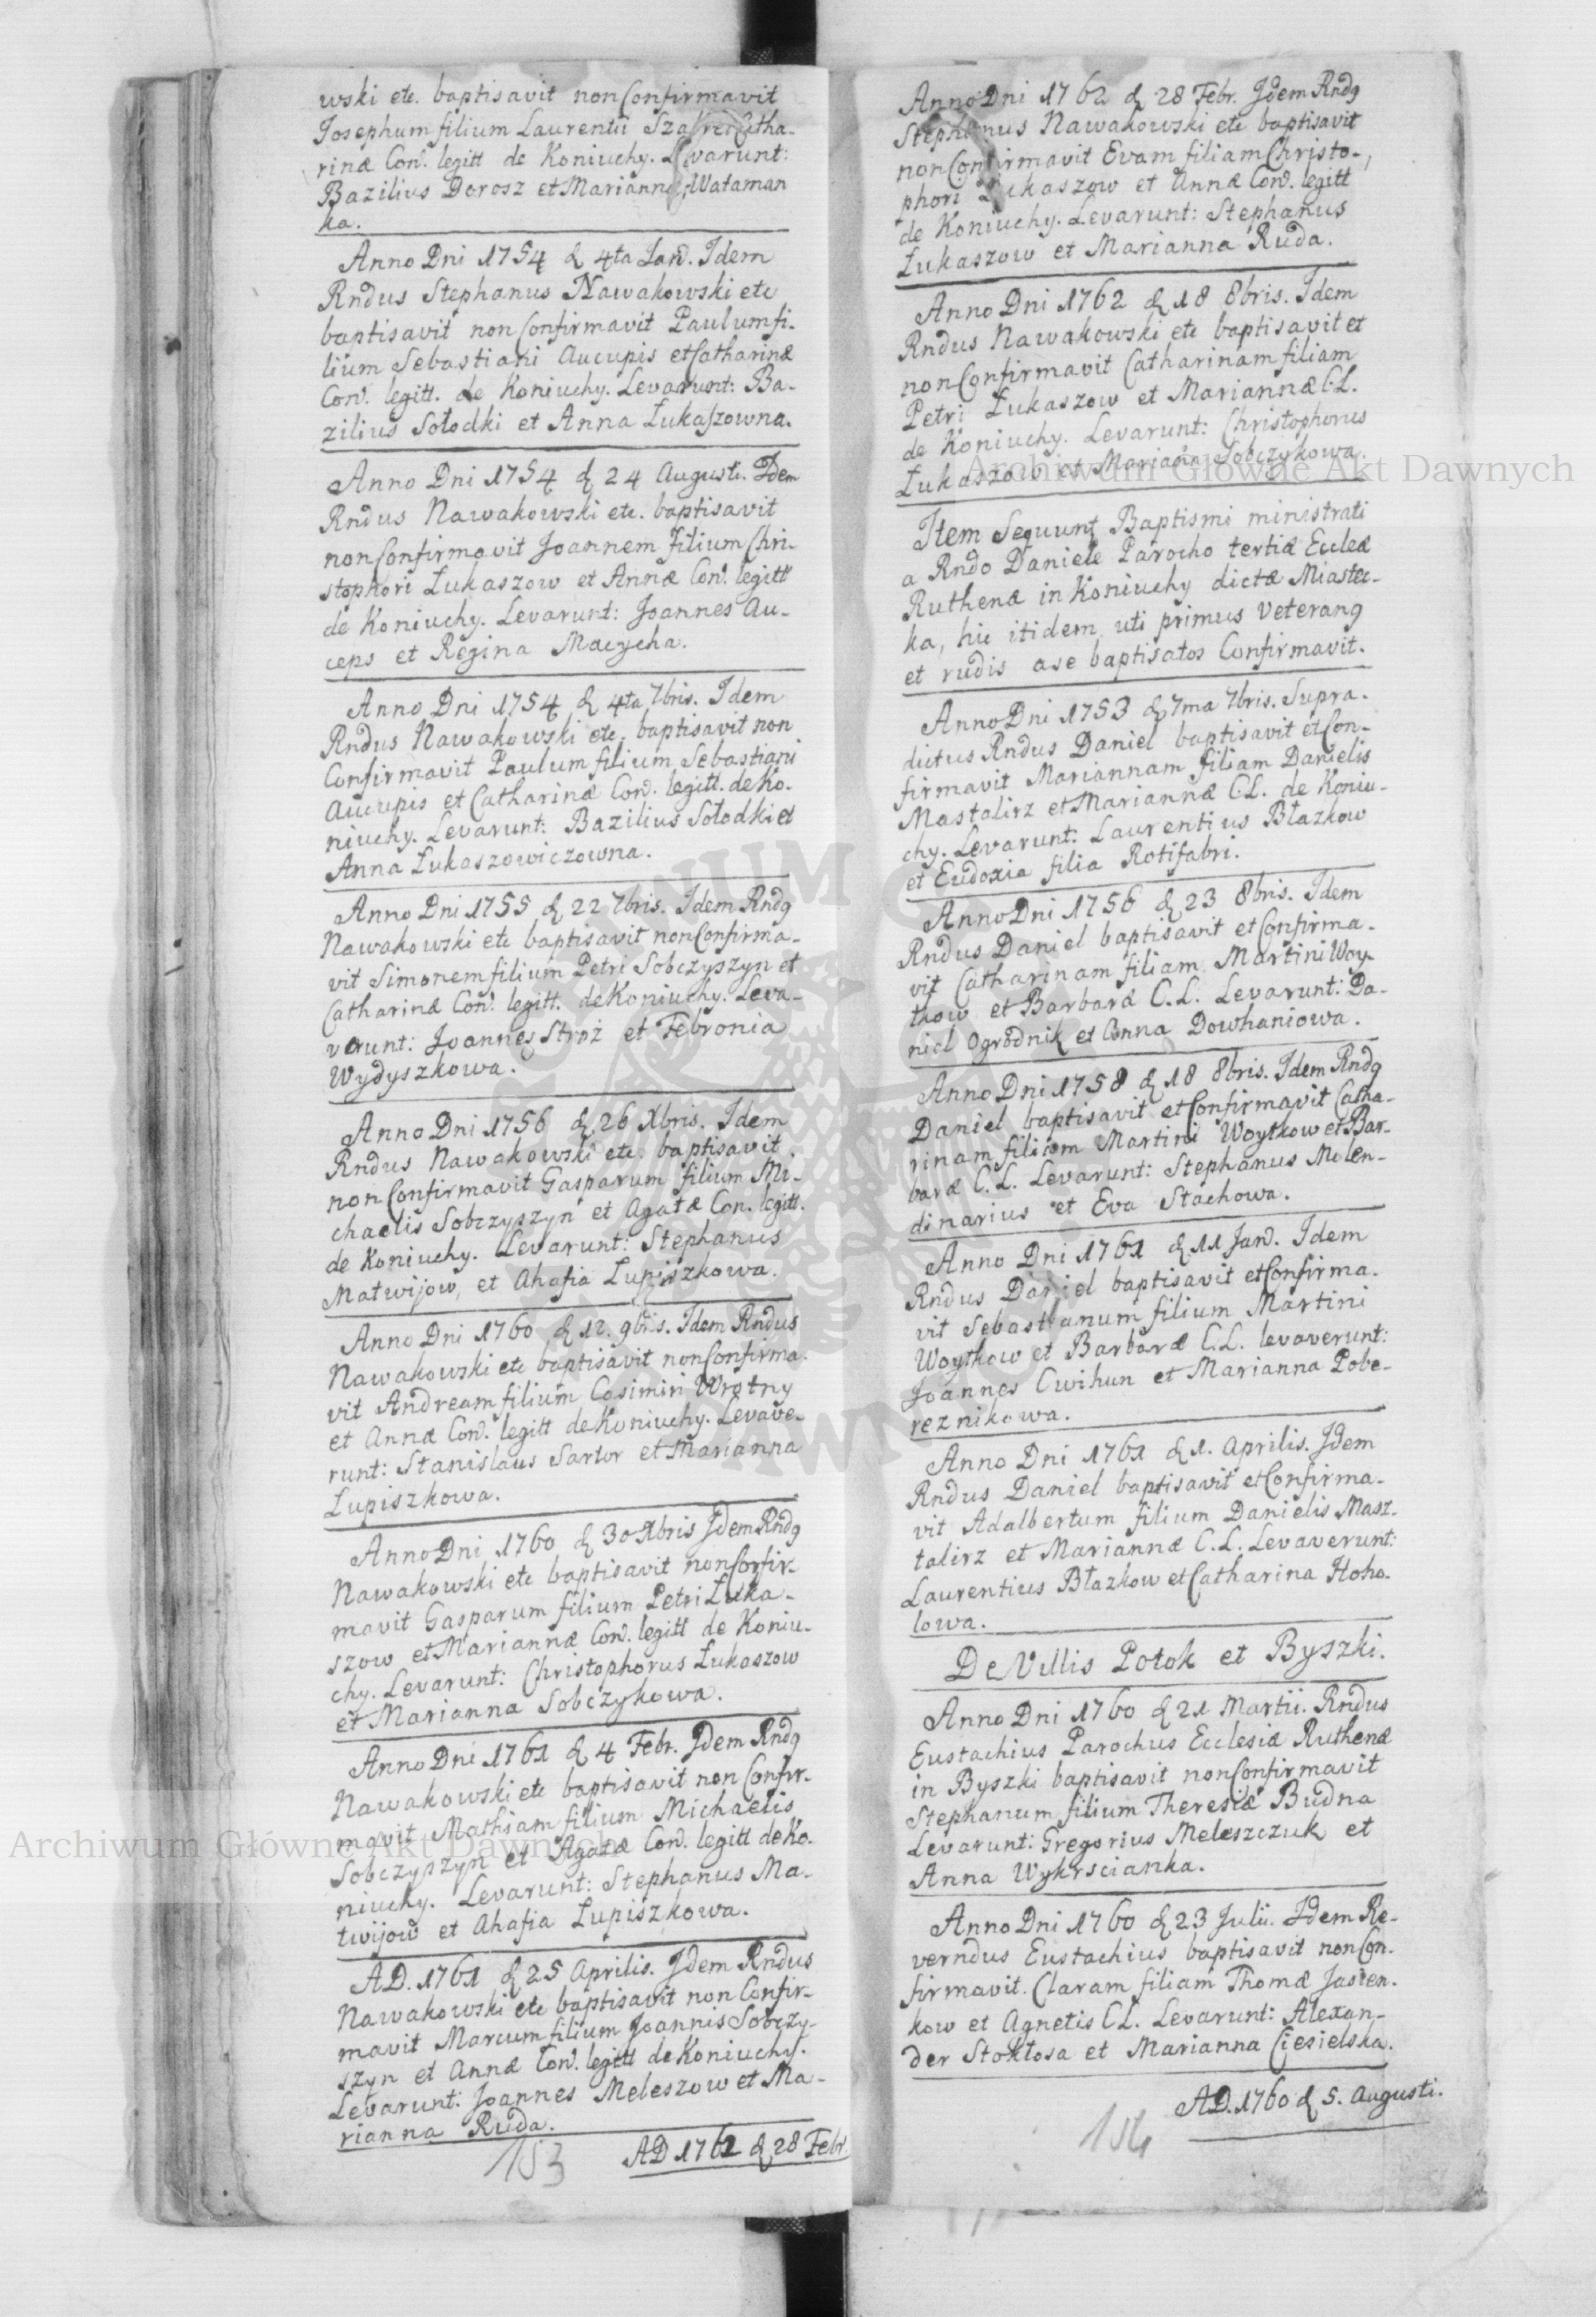 wski etc. baptisavit non Confirmavit
Josephum filium Laurentii Catha-
rinæ Con. legitt de Koniuchy. Levarunt:
Bazilius Dorosz et Marianna Wataman
ka.
Anno Dni 1754 d 4ta Jan. Idem
Rndus Stephanus Nawakowski etc
baptisavit non Confirmavit Paulum fi-
lium Sebastiani Aucupis et Catharinæ
Con. legitt. de Koniuchy. Levarunt: Ba-
zilius Sołodki et Anna Łukaszowna.
Anno Dni 1754 d 24 Augusti. Idem
Rndus Nawakowski etc. baptisavit
non Confirmavit Joannem filium Chri-
stophori Łukaszow et Annæ Con. legitt
de Koniuchy. Levarunt: Joannes Au-
ceps et Regina Macycha.
Anno Dni 1754 d 4ta 7bris. Idem
Rndus Nawakowski etc. baptisavit non
Confirmavit Paulum filium Sebastiani
Aucupis et Catharinæ Con. legitt. de Ko-
niuchy. Levarunt: Bazilius Sołodki et
Anna Łukaszowiczowna.
Anno Dni 1755 d 22 7bris. Idem Rndq
Nawakowski etc baptisavit non Confirma-
vit Simonem filium Petri Sobczyszyn et
Catharinæ Con. legitt. de Koniuchy. Leva-
verunt: Joannes Stroż et Febronia
Wydyszkowa.
Anno Dni 1756 d 26 Xbris. Idem
Rndus Nawakowski etc. baptisavit
non Confirmavit Gasparum filium Mi-
chaelis Sobczyszyn et Agatæ Con. legitt.
de Koniuchy. Levarunt: Stephanus
Matwijow, et Ahafia Łupiszkowa.
Anno Dni 1760 d 12. 9bris. Idem Rndus
Nawakowski etc baptisavit non Confirma-
vit Andream filium Casimiri Wrotny
et Annæ Con. legitt de Koniuchy. Levave-
runt: Stanislaus Sartor et Marianna
Łupiszkowa.
Anno Dni 1760 d 30 Xbris Idem Rndq
Nawakowski etc baptisavit non Confir-
mavit Gasparum filium Petri Łuka-
szow et Mariannæ Con. legitt de Koniu-
chy. Levarunt: Christophorus Łukaszow
et Marianna Sobczykowa.
Anno Dni 1761 d 4 Febr. Idem Rndq
Nawakowski etc baptisavit non Confir-
mavit Mathiam filium Michaelis
Sobczyszyn et Agatæ Con. legitt de Ko-
niuchy. Levarunt: Stephanus Ma-
twijow et Ahafia Łupiszkowa.
AD. 1761 d 25 Aprilis. Idem Rndus
Nawakowski etc baptisavit non Confir-
mavit Marcum filium Joannis Sobczy-
szyn et Annæ Con. legitt de Koniuchy.
Levarunt: Joannes Meleszow et Ma-
rianna Ruda.
153
AD 1762 d 28 Febr
Anno Dni 1762 d 28 Febr. Idem Rndq
Stephanus Nawakowski etc baptisavit
non Confirmavit Evam filiam Christo-
phori Łukaszow et Annæ Con. legitt
de Koniuchy. Levarunt: Stephanus
Łukaszow et Marianna Ruda.
Anno Dni 1762 d 18 8bris. Idem
Rndus Nawakowski etc baptisavit et
non Confirmavit Catharinam filiam
Petri Łukaszow et Mariannæ C.L.
de Koniuchy. Levarunt: Christophorus
Łukaszow et Marianna Sobczykowa.
Item Sequunt Baptismi ministrati
a Rndo Daniele Parocho tertiæ Eccleæ
Ruthenæ in Koniuchy dictæ Miastec-
ka, hic itidem uti primus Veteranq
et rudis a se baptisatos Confirmavit.
Anno Dni 1753 d 7ma 7bris. Supra-
dictus Rndus Daniel baptisavit et Con-
firmavit Mariannam filiam Danielis
Mastalirz et Mariannæ C.L. de Koniu-
chy. Levarunt: Laurentius Błazkow
et Eudoxia filia Rotifabri.
Anno Dni 1756 d 23 8bris. Idem
Rndus Daniel baptisavit et Confirma-
vit Catharinam filiam Martini Woy-
tkow et Barbaræ C.L. Levarunt: Da-
niel Ogrodnik et Anna Dowhaniowa.
Anno Dni 1758 d 18 8bris. Idem Rndq
Daniel baptisavit et Confirmavit Catha-
rinam filiam Martini Woytkow et Bar-
baræ C.L. Levarunt: Stephanus Molen-
dinarius et Eva Stachowa.
Anno Dni 1761 d 11 Jan. Idem
Rndus Daniel baptisavit et Confirma-
vit Sebastianum filium Martini
Woytkow et Barbaræ C.L. levaverunt:
Joannes Cwihun et Marianna Pobe-
reznikowa.
Anno Dni 1761 d 1. Aprilis. Idem
Rndus Daniel baptisavit et Confirma-
vit Adalbertum filium Danielis Masz-
talirz et Mariannæ C.L. Levaverunt:
Laurentius Błazkow et Catharina Hoho-
lowa.
De Villis Potok et Byszki.
Anno Dni 1760 d 21 Martii. Rndus
Eustachius Parochus Ecclesiæ Ruthenæ
in Byszki baptisavit non Confirmavit
Stephanum filium Theresiæ Budna
Levarunt: Gregorius Meleszczuk et
Anna Wykrscianka.
Anno Dni 1760 d 23 Julii. Idem Re-
verndus Eustachius baptisavit non Con-
firmavit. Claram filiam Thomæ Jasien-
kow et Agnetis C.L. Levarunt: Alexan-
der Stokłosa et Marianna Ciesielska.
AD. 1760 d 5. Augusti.
154
Archiwum Główne Akt Dawnych
Archiwum Główne Akt Dawnych